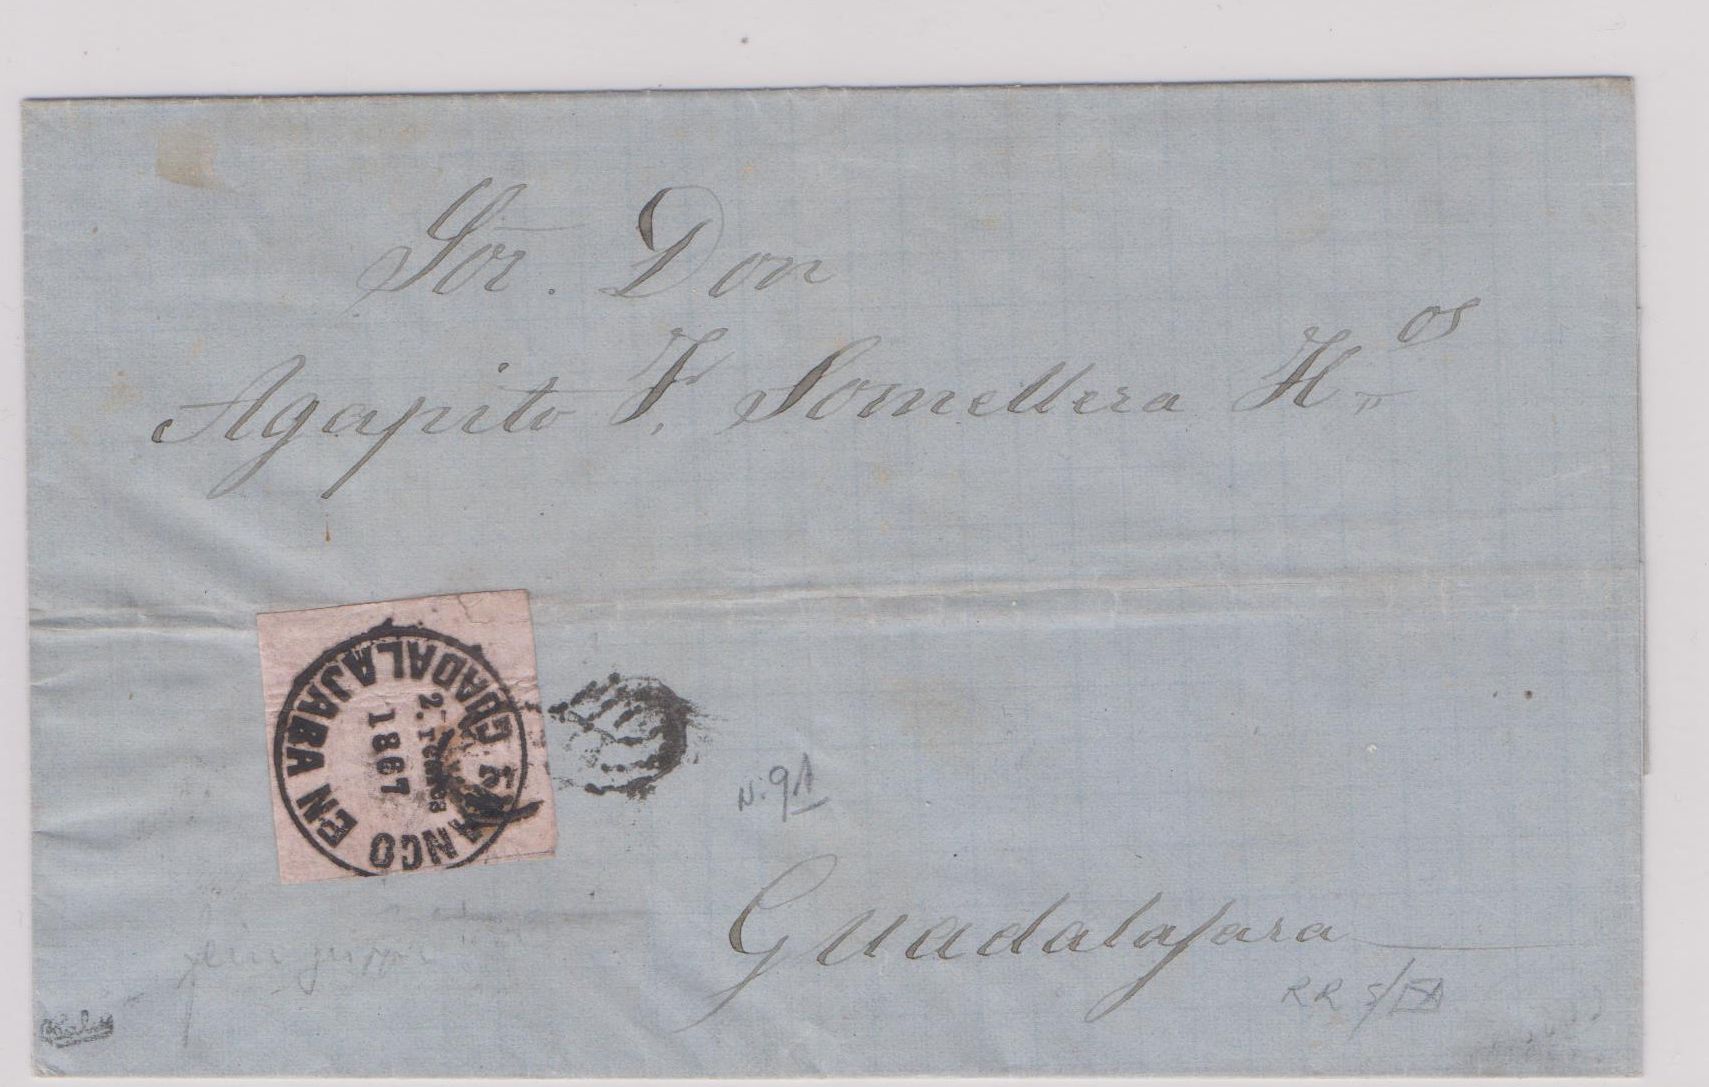 Sōr. Don
Agapito F. Somellera H.os
FRANCO EN GUADALAJARA
2. reales
1867
N. 91
Guadalajara
RR